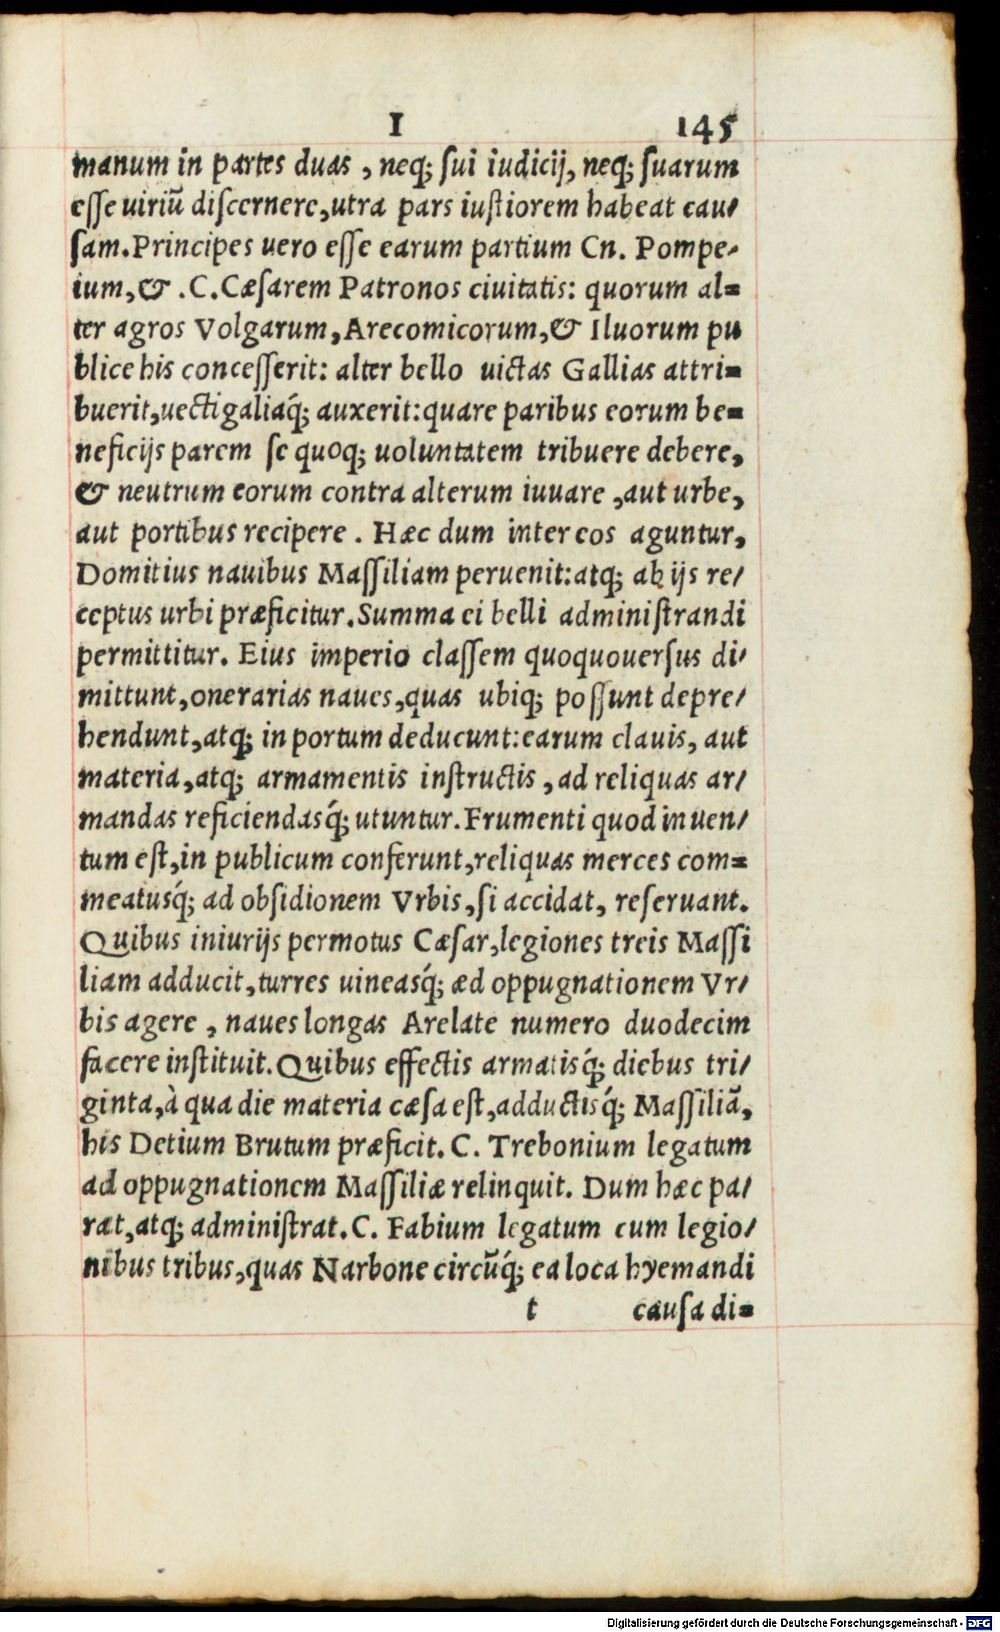 I 145
manum in partes duas , neq; ſui iudicij, neq; ſuarum
eſſe uiriū diſcernere,utra pars iuſtiorem habeat cau/
ſam.Principes uero eſſe earum partium Cn. Pompe-
ium,& .C.Cæſarem Patronos ciuitatis: quorum al=
ter agros Volgarum,Arecomicorum,& Iluorum pu
blice his conceſſerit: alter bello uictas Gallias attri=
buerit,uectigaliaq́; auxerit:quare paribus eorum be=
neficijs parem ſe quoq; uoluntatem tribuere debere,
& neutrum eorum contra alterum iuuare ,aut urbe,
aut portibus recipere . Hæc dum inter eos aguntur,
Domitius nauibus Maſſiliam peruenit:atq; ab ijs re/
ceptus urbi præficitur.Summa ei belli adminiſtrandi
permittitur. Eius imperio claſſem quoquouerſus di/
mittunt,onerarias naues,quas ubiq; poſſunt depre/
hendunt,atq; in portum deducunt:earum clauis, aut
materia,atq; armamentis inſtructis ,ad reliquas ar/
mandas reficiendasq́; utuntur.Frumenti quod inuen/
tum eſt,in publicum conferunt,reliquas merces com=
meatusq́; ad obſidionem Vrbis,ſi accidat, reſeruant.
Quibus iniurijs permotus Cæſar,legiones treis Maſſi
liam adducit,turres uineasq́; æd oppugnationem Vr/
bis agere , naues longas Arelate numero duodecim
facere inſtituit.Quibus effectis armatisq́; diebus tri/
ginta,à qua die materia cæſa eſt,adductisq́; Maſſiliā,
his Detium Brutum præficit. C. Trebonium legatum
ad oppugnationem Maſſiliæ relinquit. Dum hæc pa/
rat,atq; adminiſtrat.C. Fabium legatum cum legio/
nibus tribus,quas Narbone circūq́; ea loca hyemandi
t cauſa di=
Digitalisierung gefördert durch die Deutsche Forschungsgemeinschaft - DFG